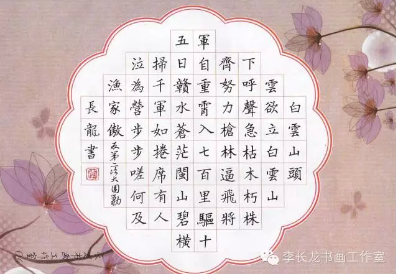 白雲山頭
雲欲立白雲山
下呼聲急枯木朽株
齊努力槍林逼飛將
軍自重霄入七百里驅十
五日贛水蒼茫閩山碧橫
掃千軍如捲席有人
泣為營步步嗟何及
漁家傲 反第二次大围勦
長龍書
李长龙书画工作室